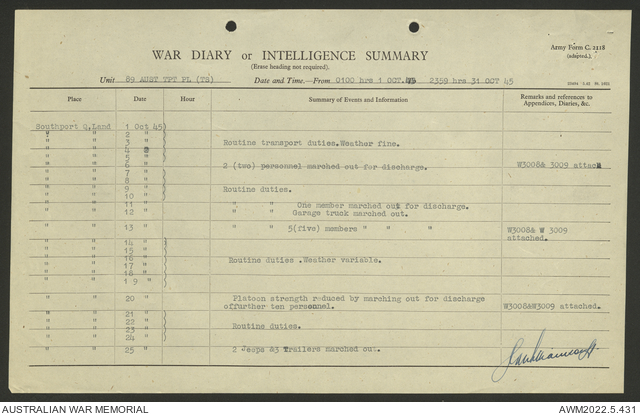 Army Form C. 2118
WAR DIARY or INTELLIGENCE SUMMARY
(adapted.)
(Erase heading not required).
Unit 89 AUST TPT PL (TS) Date and Time.—From 0100 hrs 1 OCT 45 2359 hrs 31 OCT 45
Place Date Hour Summary of Events and Information Remarks and references to
Appendices, Diaries, &c.
Southport Q.Land 1 Oct 45)
" " 2 " )
" " 3 " ) Routine transport duties.Weather fine.
" " 4 " )
" " 5 " )
" " 6 " 2 (two) personnel marched out for discharge. W3008& 3009 attach
" " 7 " )
" " 8 " )
" " 9 " ) Routine duties.
" " 10 " )
" " 11 " " " One member marched out for discharge.
" " 12 " " " Garage truck marched out.
" " 13 " " " 5(five) members " " " W3008& W 3009
attached.
" " 14 " )
" " 15 " )
" " 16 " ) Routine duties .Weather variable.
" " 17 " )
" " 18 " )
" " 1 9 " )
" " 20 " Platoon strength reduced by marching out for discharge
offurther ten personnel. W3008&W3009 attached.
" " 21 " )
" " 22 " )
" " 23 " ) Routine duties.
" " 24 " )
" " 25 " 2 Jeeps &3 Trailers marched out.
AUSTRALIAN WAR MEMORIAL AWM2022.5.431